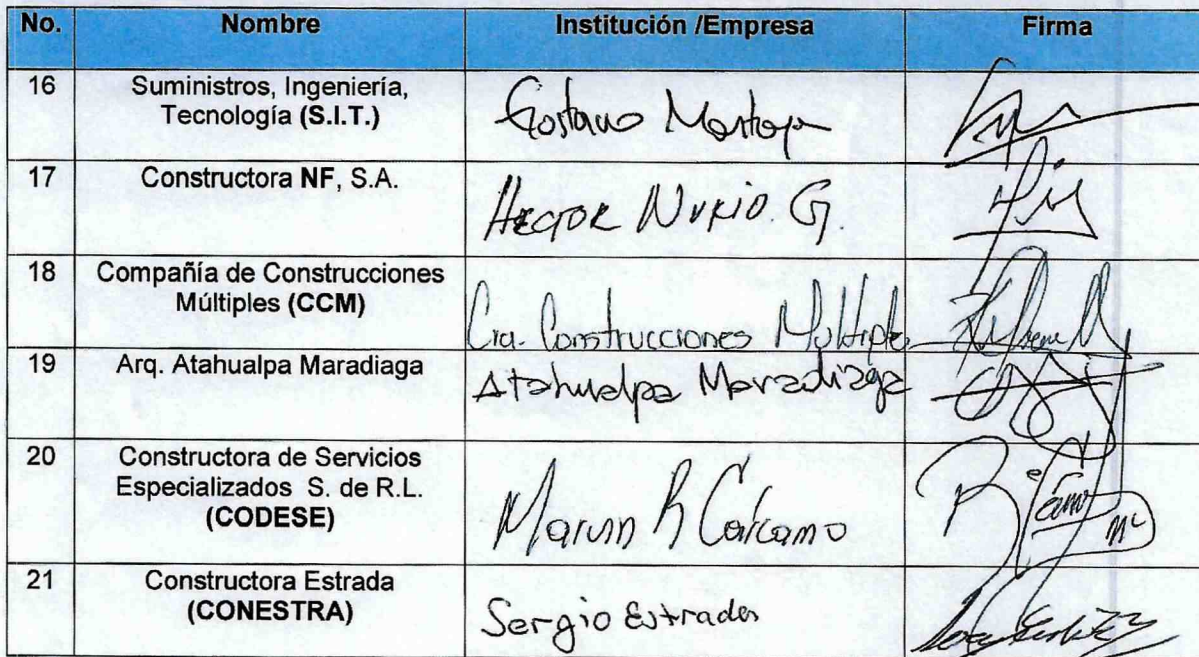 No. Nombre Institución /Empresa Firma
16 Suministros, Ingeniería,
Tecnología (S.I.T.)
17 Constructora NF, S.A.
Hector G.
18 Compañía de Construcciones
Múltiples (CCM)
Cia. Construcciones Multiples
19 Arq. Atahualpa Maradiaga Atahualpa Maradiaga
20 Constructora de Servicios
Especializados S. de R.L.
(CODESE)
Marvin R Carcamo
21 Constructora Estrada
(CONESTRA)
Sergio Estrada